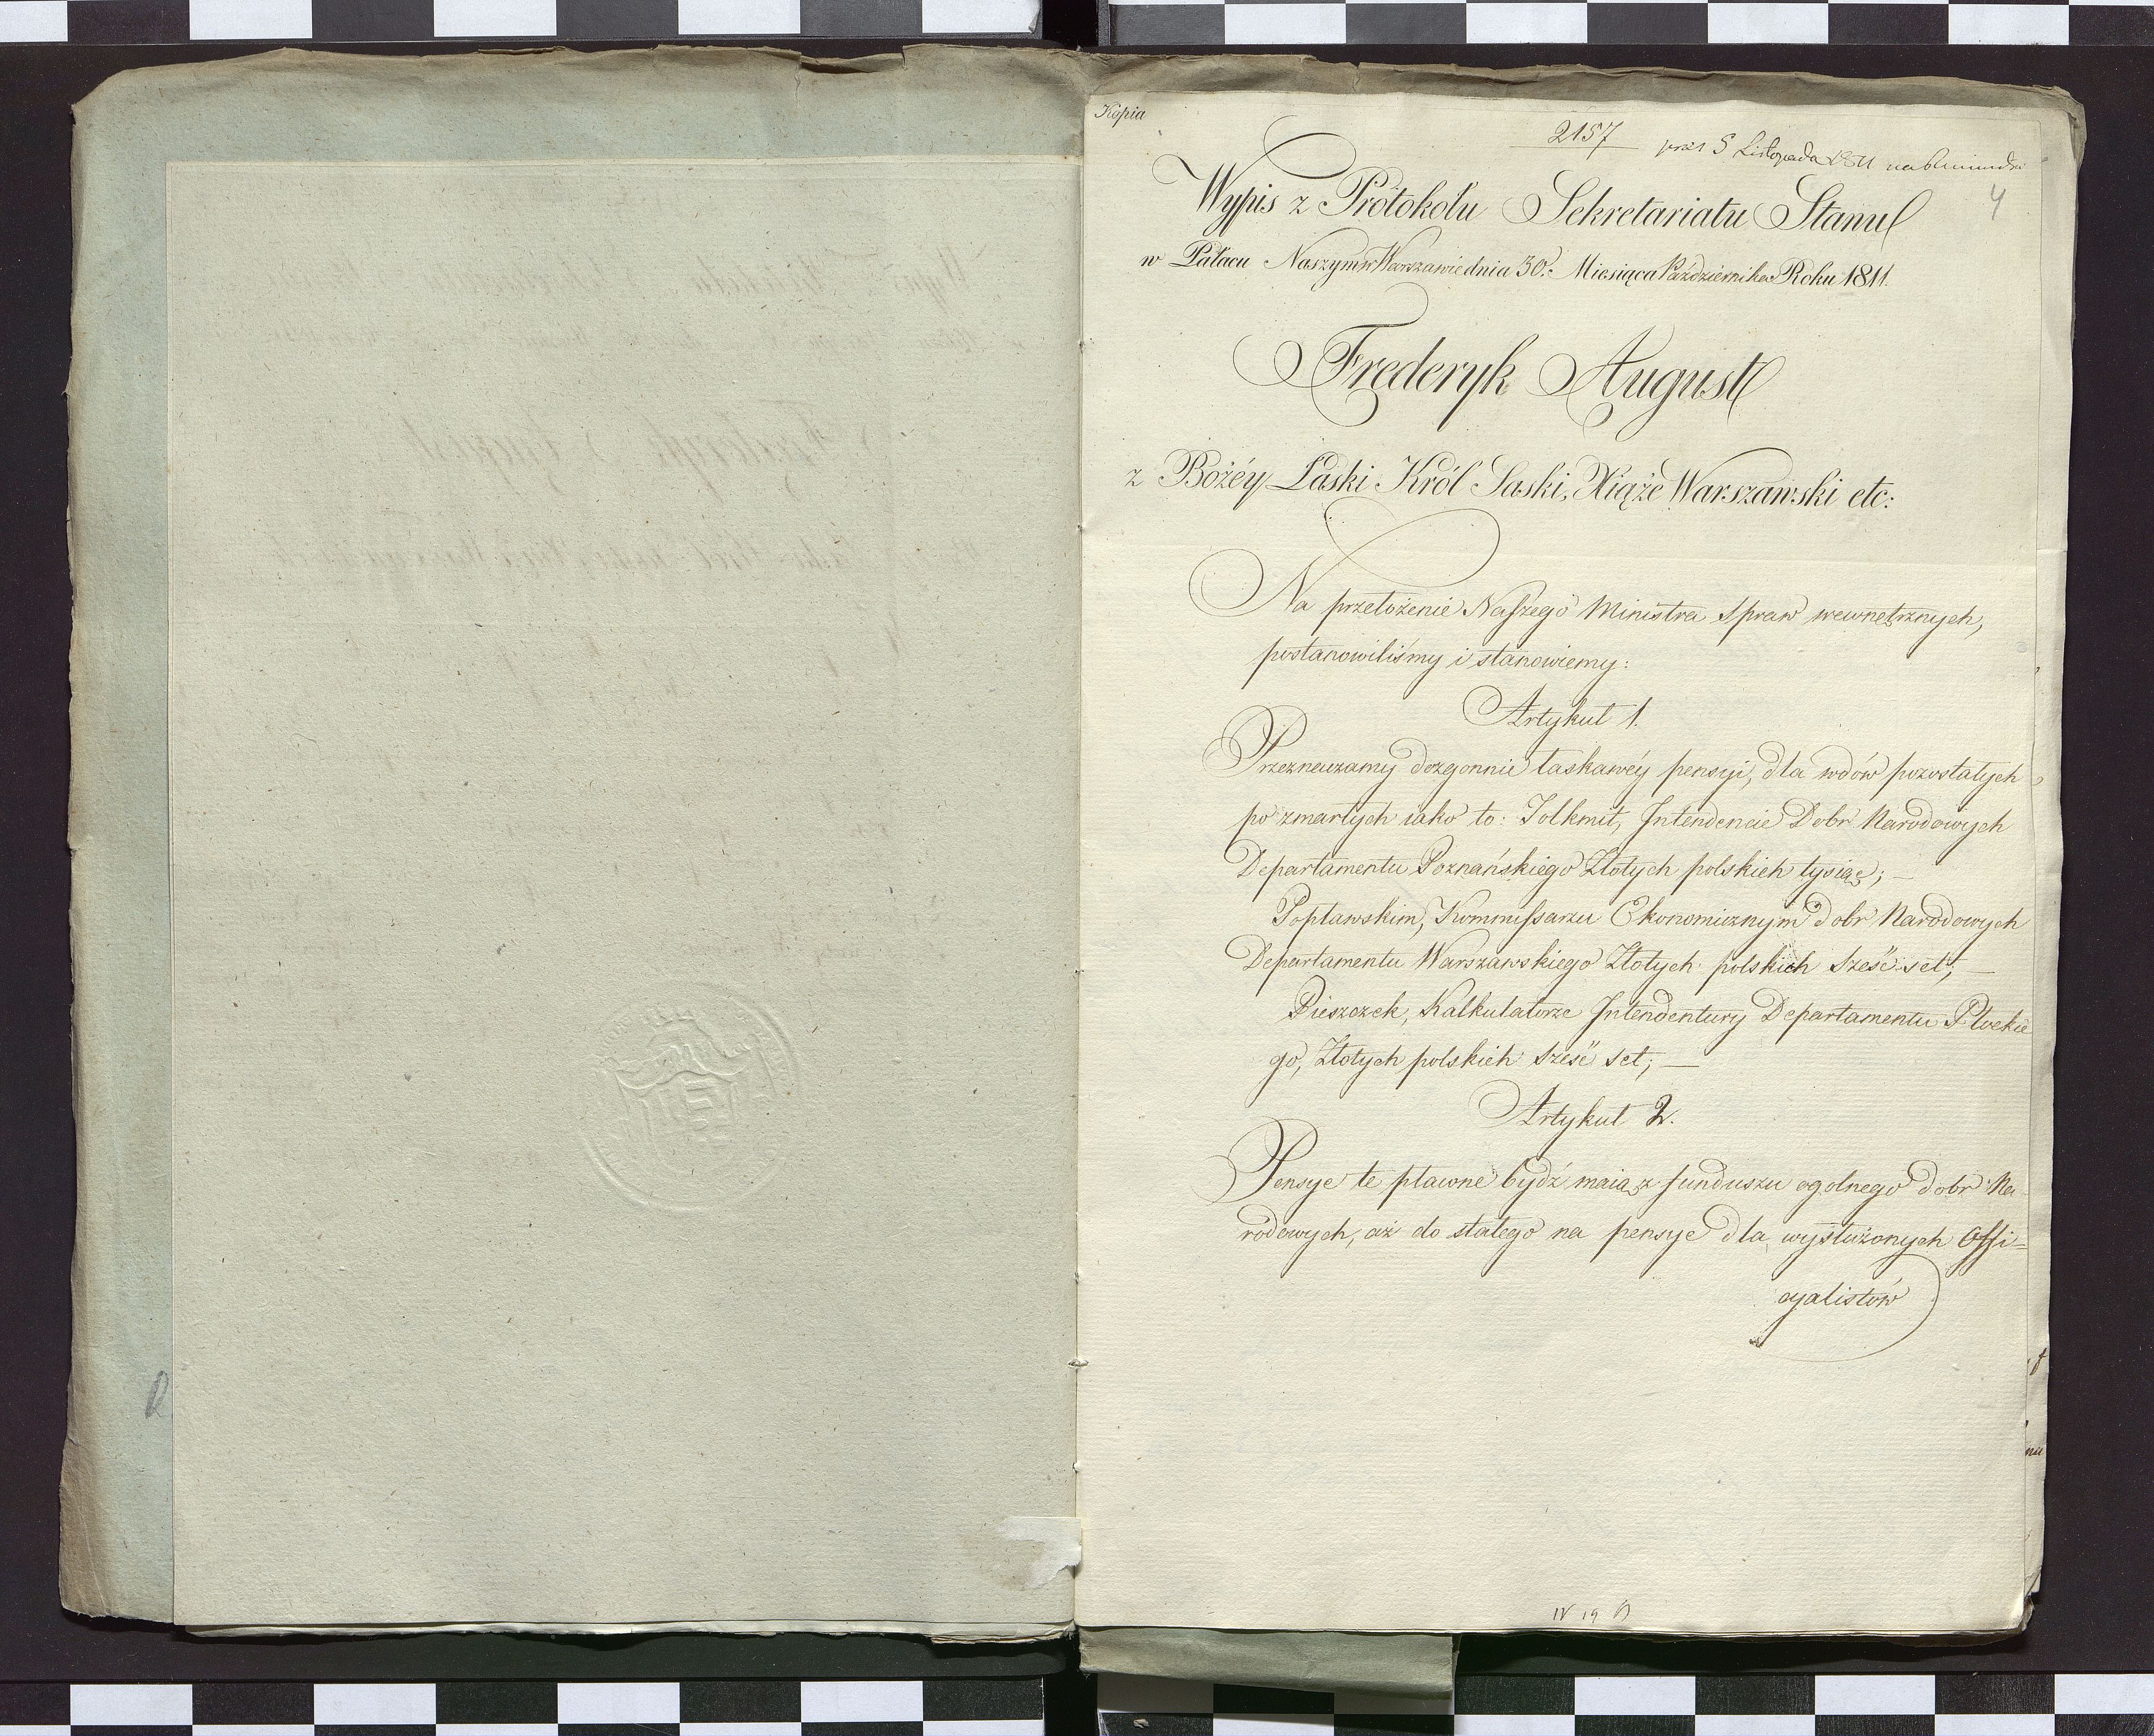 Kopia
2157
5 Listopada 1811
4
Wypis z Protokołu Sekretariatu Stanu
w Pałacu Naszym w Warszawie dnia 30. Miesiąca Października Roku 1811.
Frederyk August
z Bożéy Łaski Król Saski, Xiąże Warszawski etc:
Na przełożenie Naszego Ministra Spraw wewnętrznych,
postanowiliśmy i stanowiemy:
Artykuł 1.
Przeznaczamy dozgonnie łaskawéy pensyi, dla wdów pozostałych
po zmarłych iako to: Tolkmit, Intendencie Dobr Narodowych
Departamentu Poznańskiego Złotych polskich tysiąc; —
Popławskim, Kommissarzu Ekonomicznym dobr Narodowych
Departamentu Warszawskiego Złotych polskich sześć set; —
Pieszczek, Kalkulatorze Intendentury Departamentu Płockie
go, Złotych polskich sześć set; —
Artykuł 2.
Pensye te płacone bydź maią z funduszu ogolnego dobr Na
rodowych, aż do stałego na pensye dla wysłużonych Offi=
cyalistów